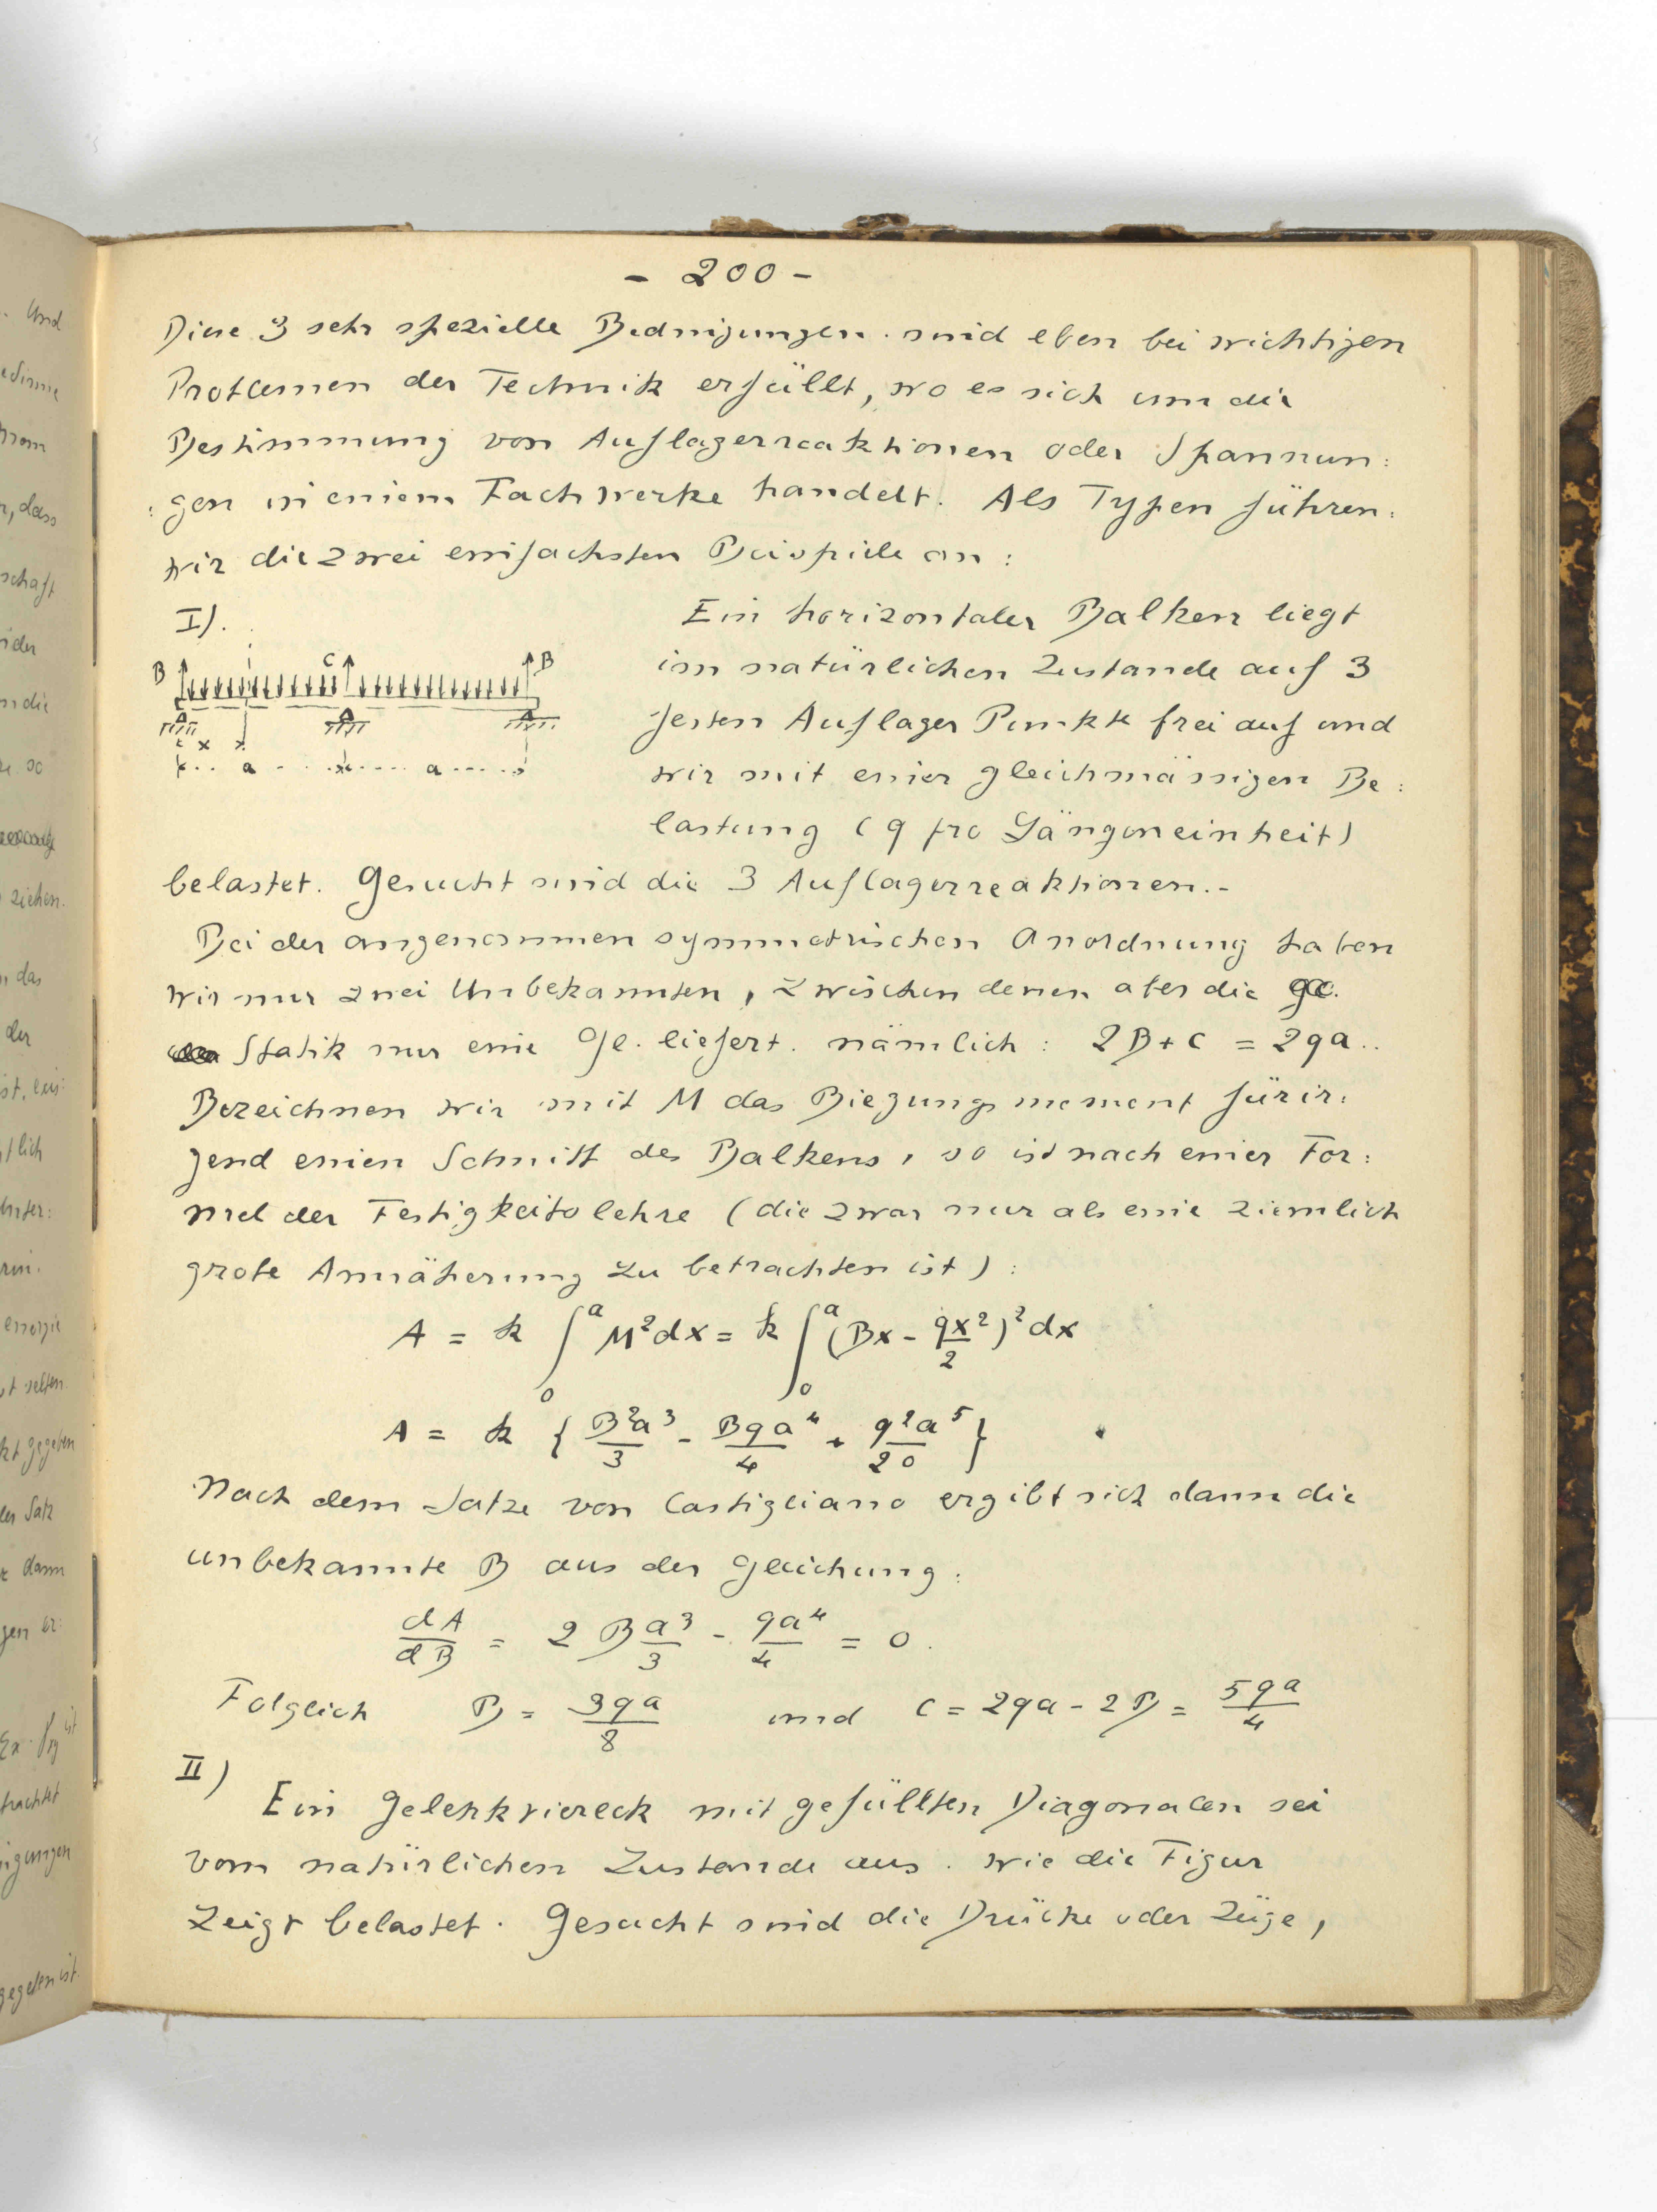 - 200 -
Diese 3 sehr spezielle Bedingungen sind eben bei wichtigen
Problemen der Technik erfüllt, wo es sich um die
Bestimmung von Auflagerreaktionen oder Spannun:
:gen in einem Fachwerke handelt. Als Typen führen
wir die zwei einfachsten Beispiele an:
I).
B C B
x
a a
Ein horizontaler Balken liegt
im natürlichen Zustande auf 3
festen Auflager Punkte frei auf und
wir mit einer gleichmässigen Be:
lastung (q pro Längeneinheit)
belastet. Gesucht sind die 3 Auflagerreaktionen.-
Bei der angenommen symmetrischen Anordnung haben
wir nur zwei Unbekannten, zwischen denen aber die
Statik nur eine Gl. liefert. nämlich: 2B + C = 2qa..
Bezeichnen wir mit M das Biegungsmoment für ir:
gend einen Schnitt des Balkens, so ist nach einer For:
mel der Festigkeitslehre (die zwar nur als eine ziemlich
grobe Annäherung zu betrachten ist):
A = k ∫₀ᵃ M² dx = k ∫₀ᵃ (Bx - qx²/2)² dx
A = k { B²a³/3 - Bqa⁴/4 + q²a⁵/20 }
Nach dem Satze von Castigliano ergibt sich dann die
unbekannte B aus der Gleichung:
dA/dB = 2 B a³/3 - qa⁴/4 = 0.
Folglich B = 3qa/8 und C = 2qa - 2B = 5qa/4
II)
Ein Gelenkviereck mit gefüllten Diagonalen sei
vom natürlichen Zustande aus. wie die Figur
zeigt belastet. Gesucht sind die Drücke oder Züge,